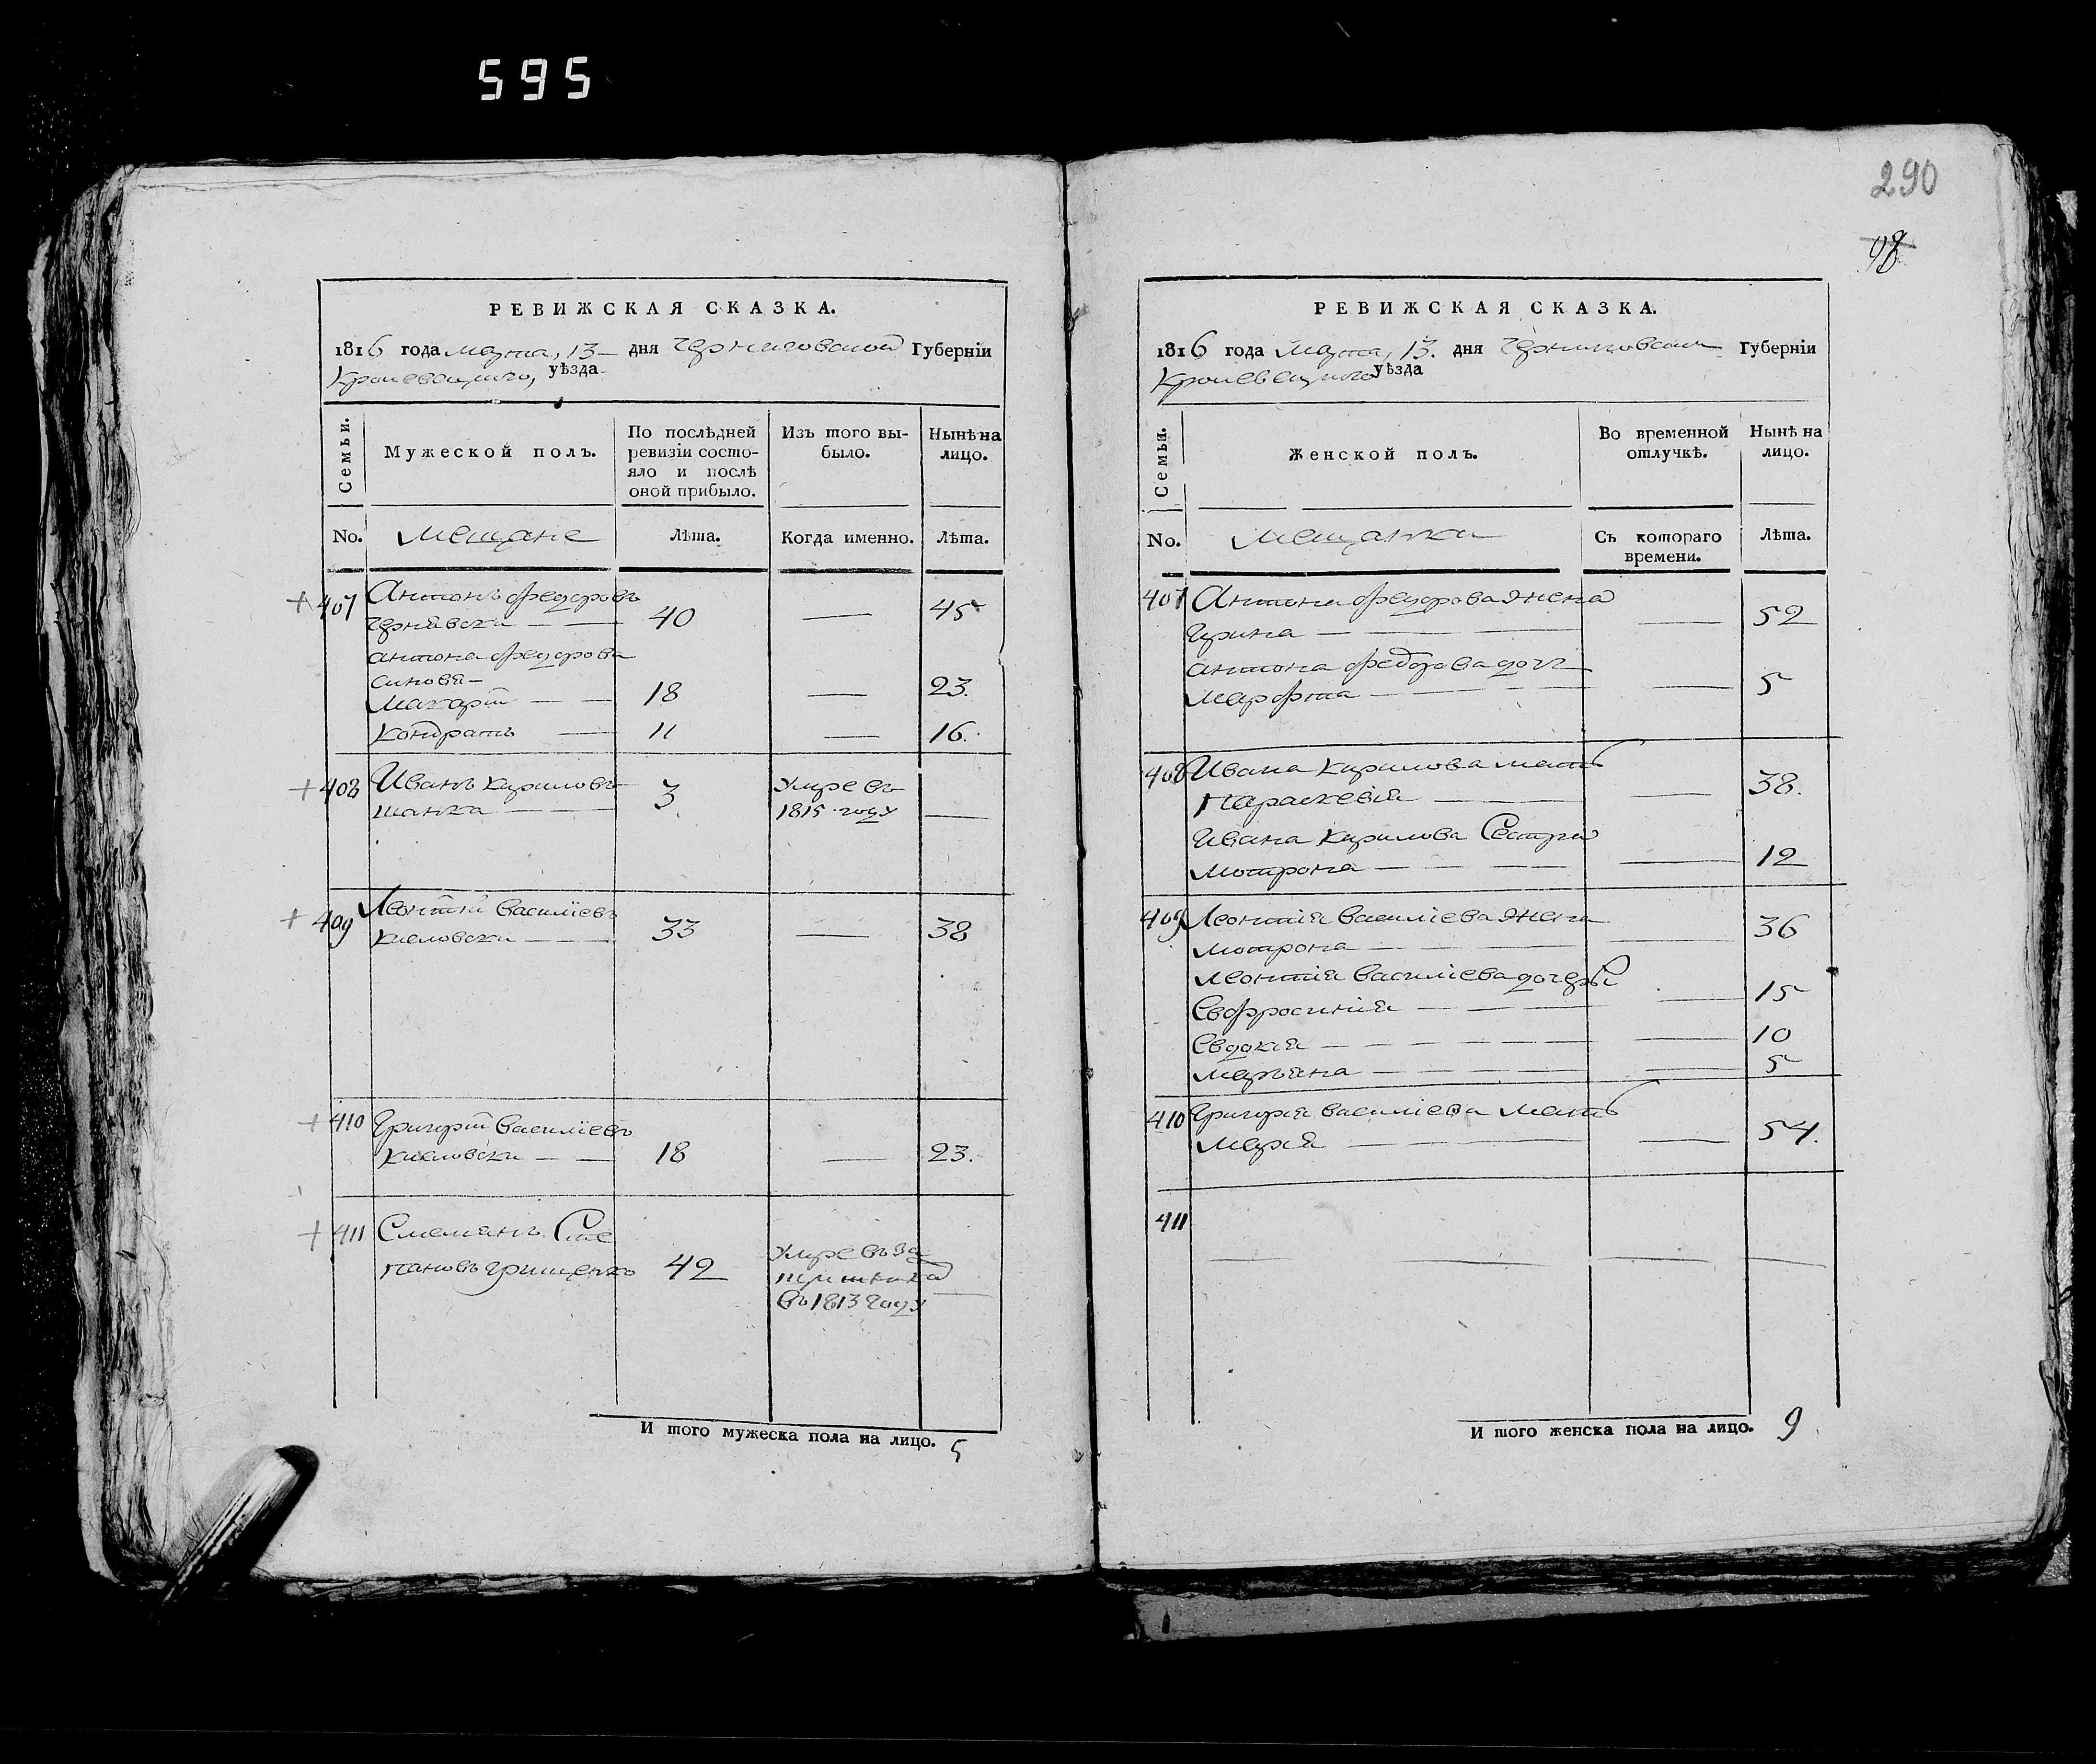 595
290
98
РЕВИЖСКАЯ СКАЗКА.
1816 года марта, 13 дня Черниговской Губерніи
Кролевецкого, уѣзда
Семьи.
Мужеской полъ.
По послѣдней ревизіи состо-
яло и послѣ
оной прибыло.
Изъ того вы-
было.
Нынѣ на
лицо.
No.
Мещане
Лѣта.
Когда именно.
Лѣта.
407 Антонъ Федоровъ
Чернявски 40 — 45
Антона Федорова
синовя
Макарій 18 — 23.
Кондратъ 11 — 16.
408 Иванъ Кириловъ 3 Умре въ
1815 году —
409 Леонтій Василіевъ
33 — 38
410 Григорій Василіевъ
18 — 23.
411 Сте
пановъ Грищенко 42 Умре
въ 1813 году —
И того мужеска пола на лицо. 5
РЕВИЖСКАЯ СКАЗКА.
1816 года Марта, 13. дня Черниговской Губерніи
Кролевецкого уѣзда
Семьи.
Женской полъ.
Во временной
отлучкѣ.
Нынѣ на
лицо.
No.
Мещанки
Съ котораго
времени.
Лѣта.
407 Антона Федорова жена
Ирина — 52
Антона Федорова дочь
Марфта — 5
408 Ивана Кирилова мать
Параскевія — 38.
Ивана Кирилова Сестра
Мотрона — 12
409 Леонтія Василіева жена
Мотрона — 36
Леонтія Василіева дочери
Евфросинія — 15
Евдокія — 10
Маріяна — 5
410 Григорія Василіева Мать
Марія — 54.
411
И того женска пола на лицо. 9